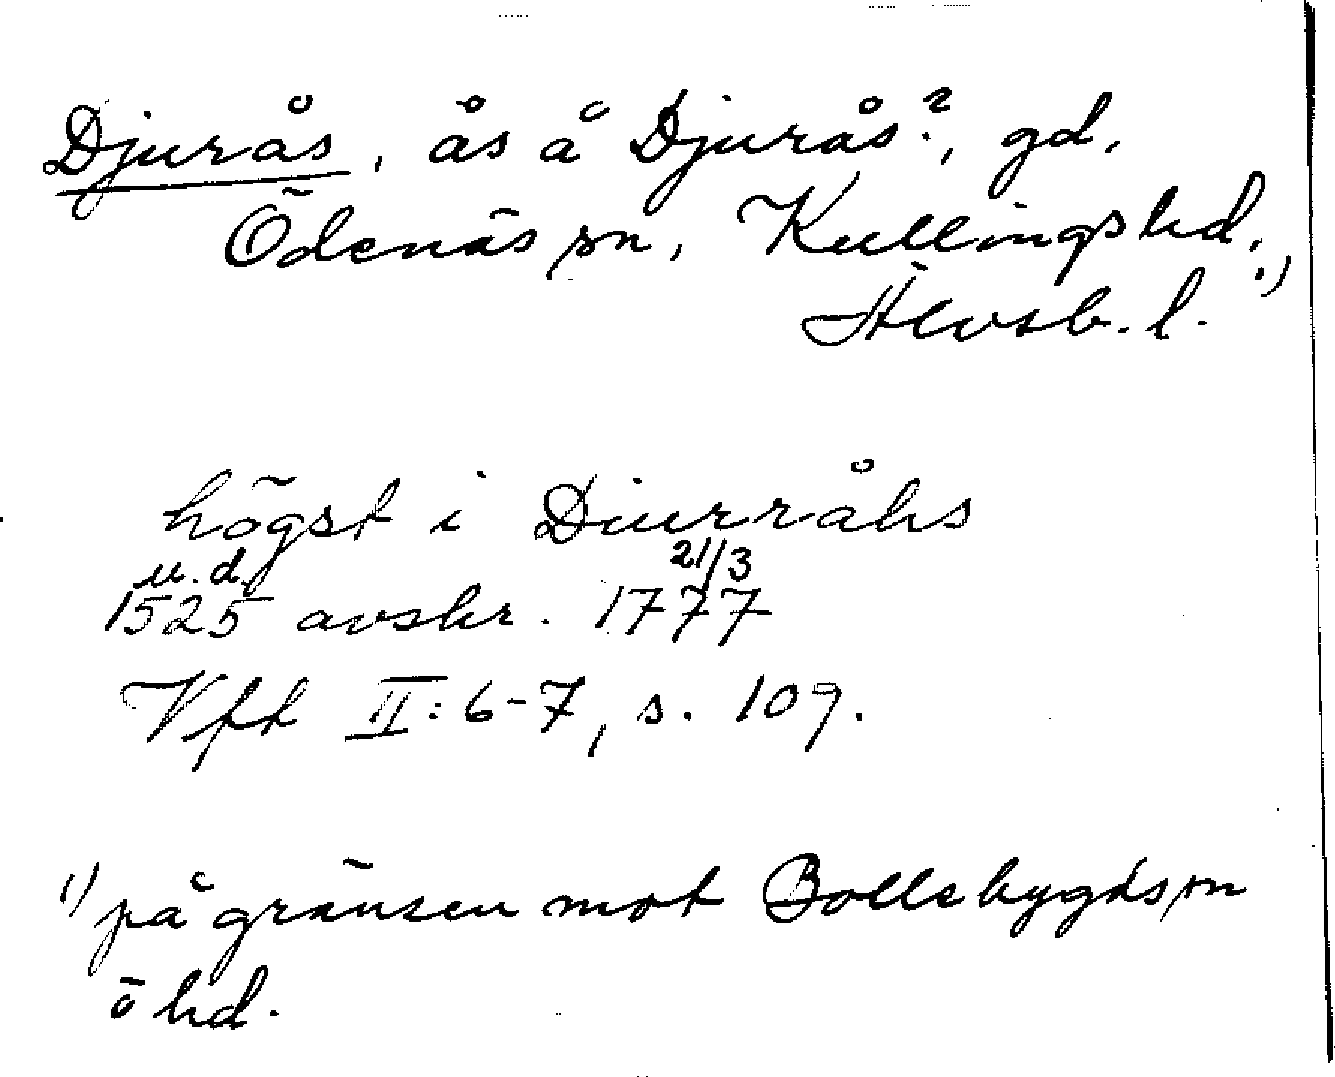 Djurås, ås å Djurås?, gd,
Ödenäs sn, Kullings hd, 1)
Älvsb. l.
högst i Diurråhs
u.d. 21/3
1525 avskr. 1777
Vft II: 6-7, s. 109.
1) på gränsen mot Bollebygds sn
ö hd.